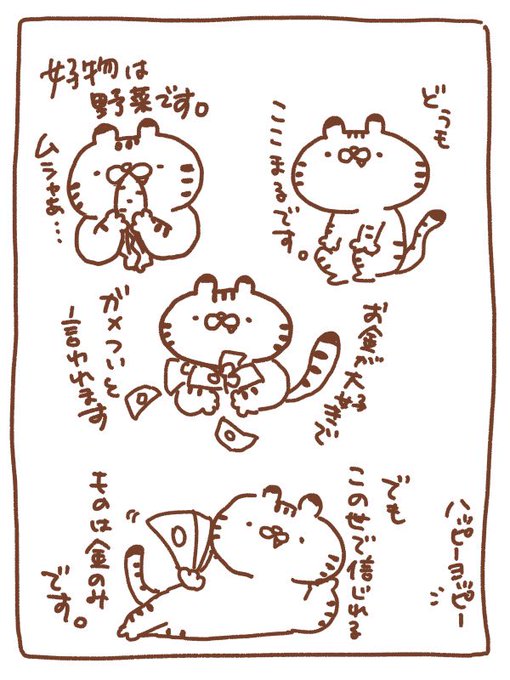 どうも
ここまるです。
好物は
野菜です。
ムシャあ…
お金が大好きで
ガメついと
言われます
でも
この世で信じれる
ものは金のみ
です。
ハッピーヨッピー